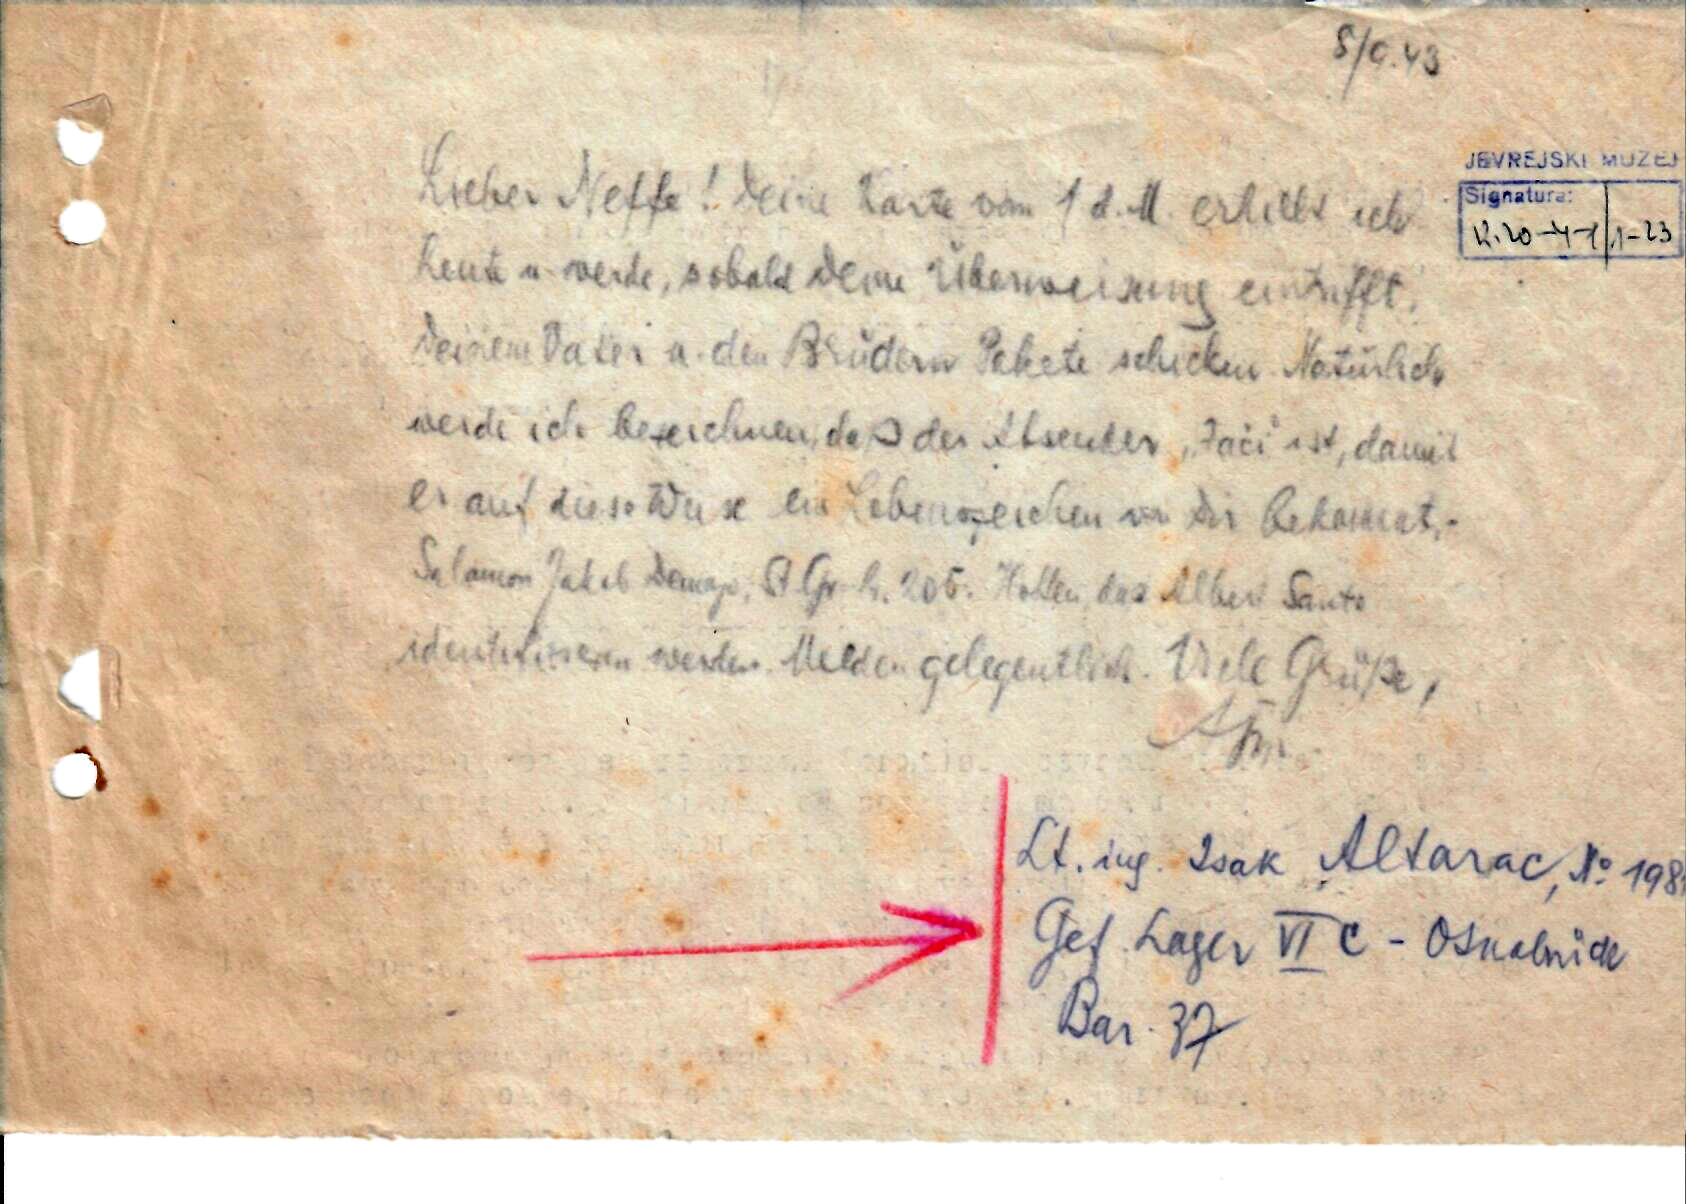 8/9.43
JEVREJSKI MUZEJ
Signatura:
K.20-4-1/1-23
Lieber Neffe! Deine Karte vom 1 d.M. erhielt ich
heute u. werde, sobald Deine Überweisung eintrifft,
Deinem Vater u. den Brüdern Pakete schicken. Natürlich
werde ich bezeichnen, daß der Absender „Žači" ist, damit
er auf diese Weise ein Lebenszeichen von Dir bekommt.-
Salamon Jakob Demajo, St. Gr. h. 205. Hoffen, das Albert Santo
identifizieren werden. Melden gelegentlich. Viele Grüße,
Lt. ing. Isak Altarac, No 198
Gef. Lager VI C - Osnabrück
Bar. 37